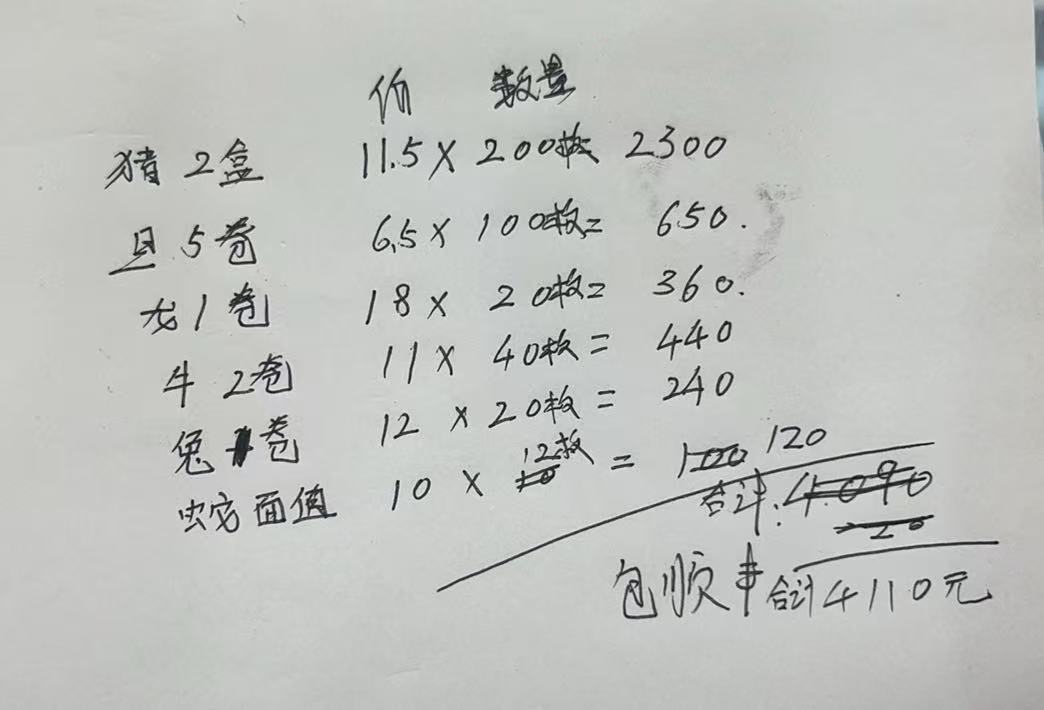 价 数量
猪 2盒 11.5 × 200枚 2300
旦 5卷 6.5 × 100枚= 650.
龙 1卷 18 × 20枚= 360.
牛 2卷 11 × 40枚= 440
兔 1卷 12 × 20枚= 240
蛇面值 10 × 12枚 = 120
合计: 4090
20
包顺丰 合计4110元